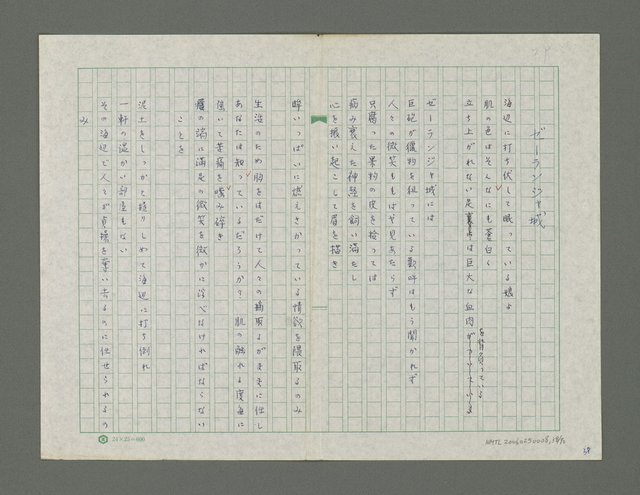 ゼーランジャ城
海辺に打ち伏して眠っている娘よ
肌の色はそんなにも蒼白く
立ち上がれない足裏には巨大な血肉が
を背負っている
ゼーランジャ城には
巨砲が獲物を狙っている歓呼はもう聞かれず
人々の微笑ももはや見あたらず
只腐った果物の皮を拾っては
病み衰えた神経を飼い満たし
心を振い起こして眉を描き
眸いっぱいに燃えさかっている情欲を隈取るのみ
生活のため胸をはだけて人々の搾取するがままに任し
あなたは知っているだろうか? 肌の触れる度毎に
傷いて苦痛を嚙み砕き
唇の端に満足の微笑を微かに浮べなければならない
ことを
泥土をしっかと握りしめて海辺に打ち倒れ
一軒の温かい部屋もない
その海辺で人々が貞操を奪い去るのに任せられるの
み
24×25=600
NMTL 20060250008
38